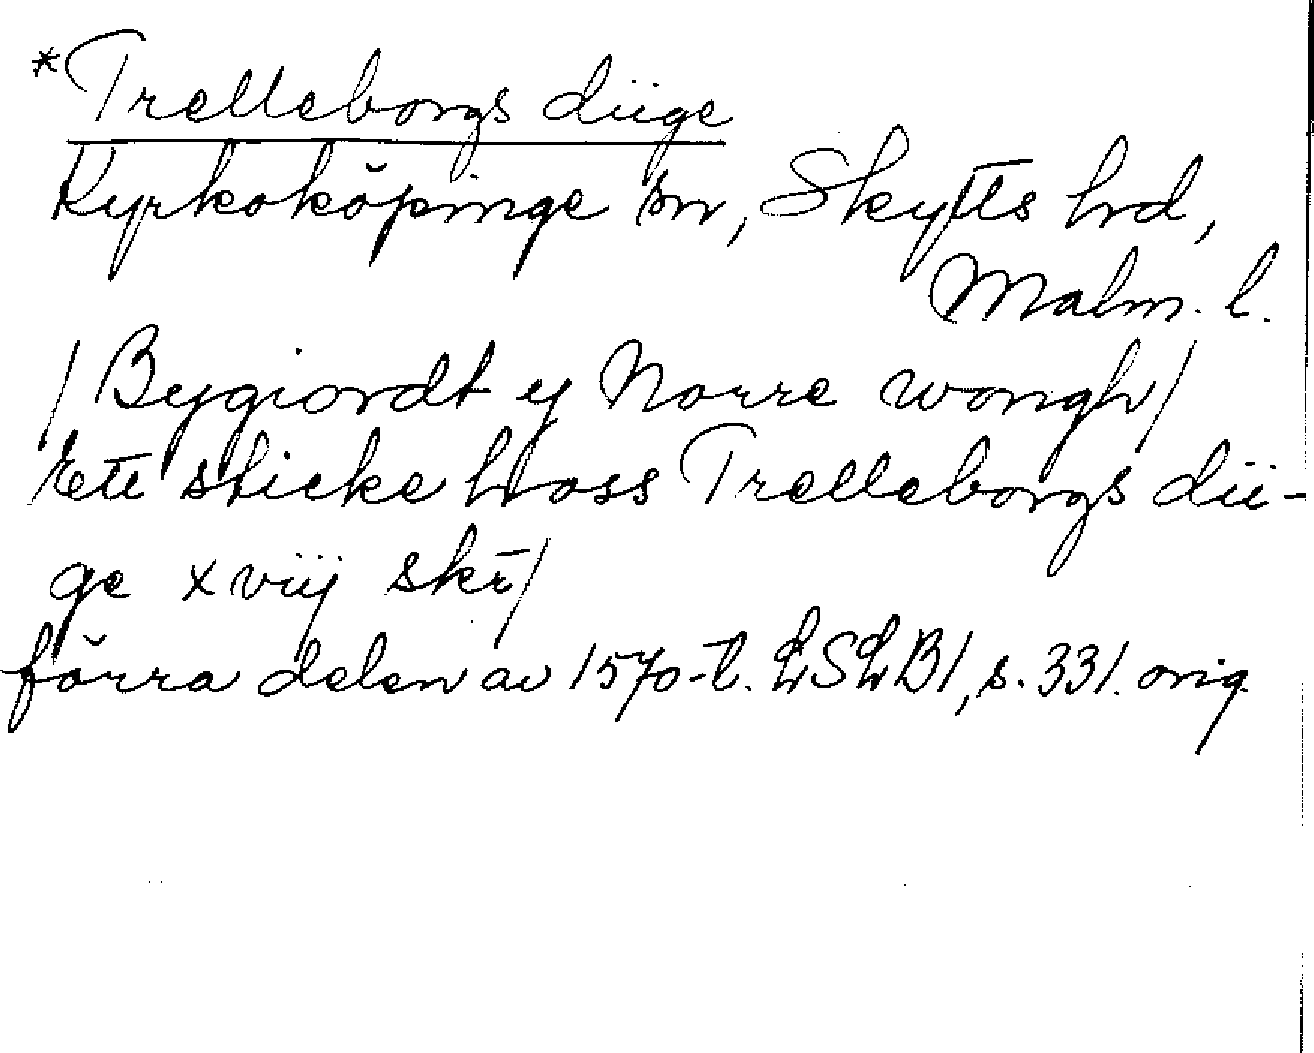 *Trelleborgs diige
Kyrkoköpinge sn, Skytts hd,
Malm. l.
/Bygiordt y Norre wongh/
Ett sticke hoss Trelleborgs dii-
ge xviij skr/
förra delen av 1570-t. LSLB1, s. 331. orig.